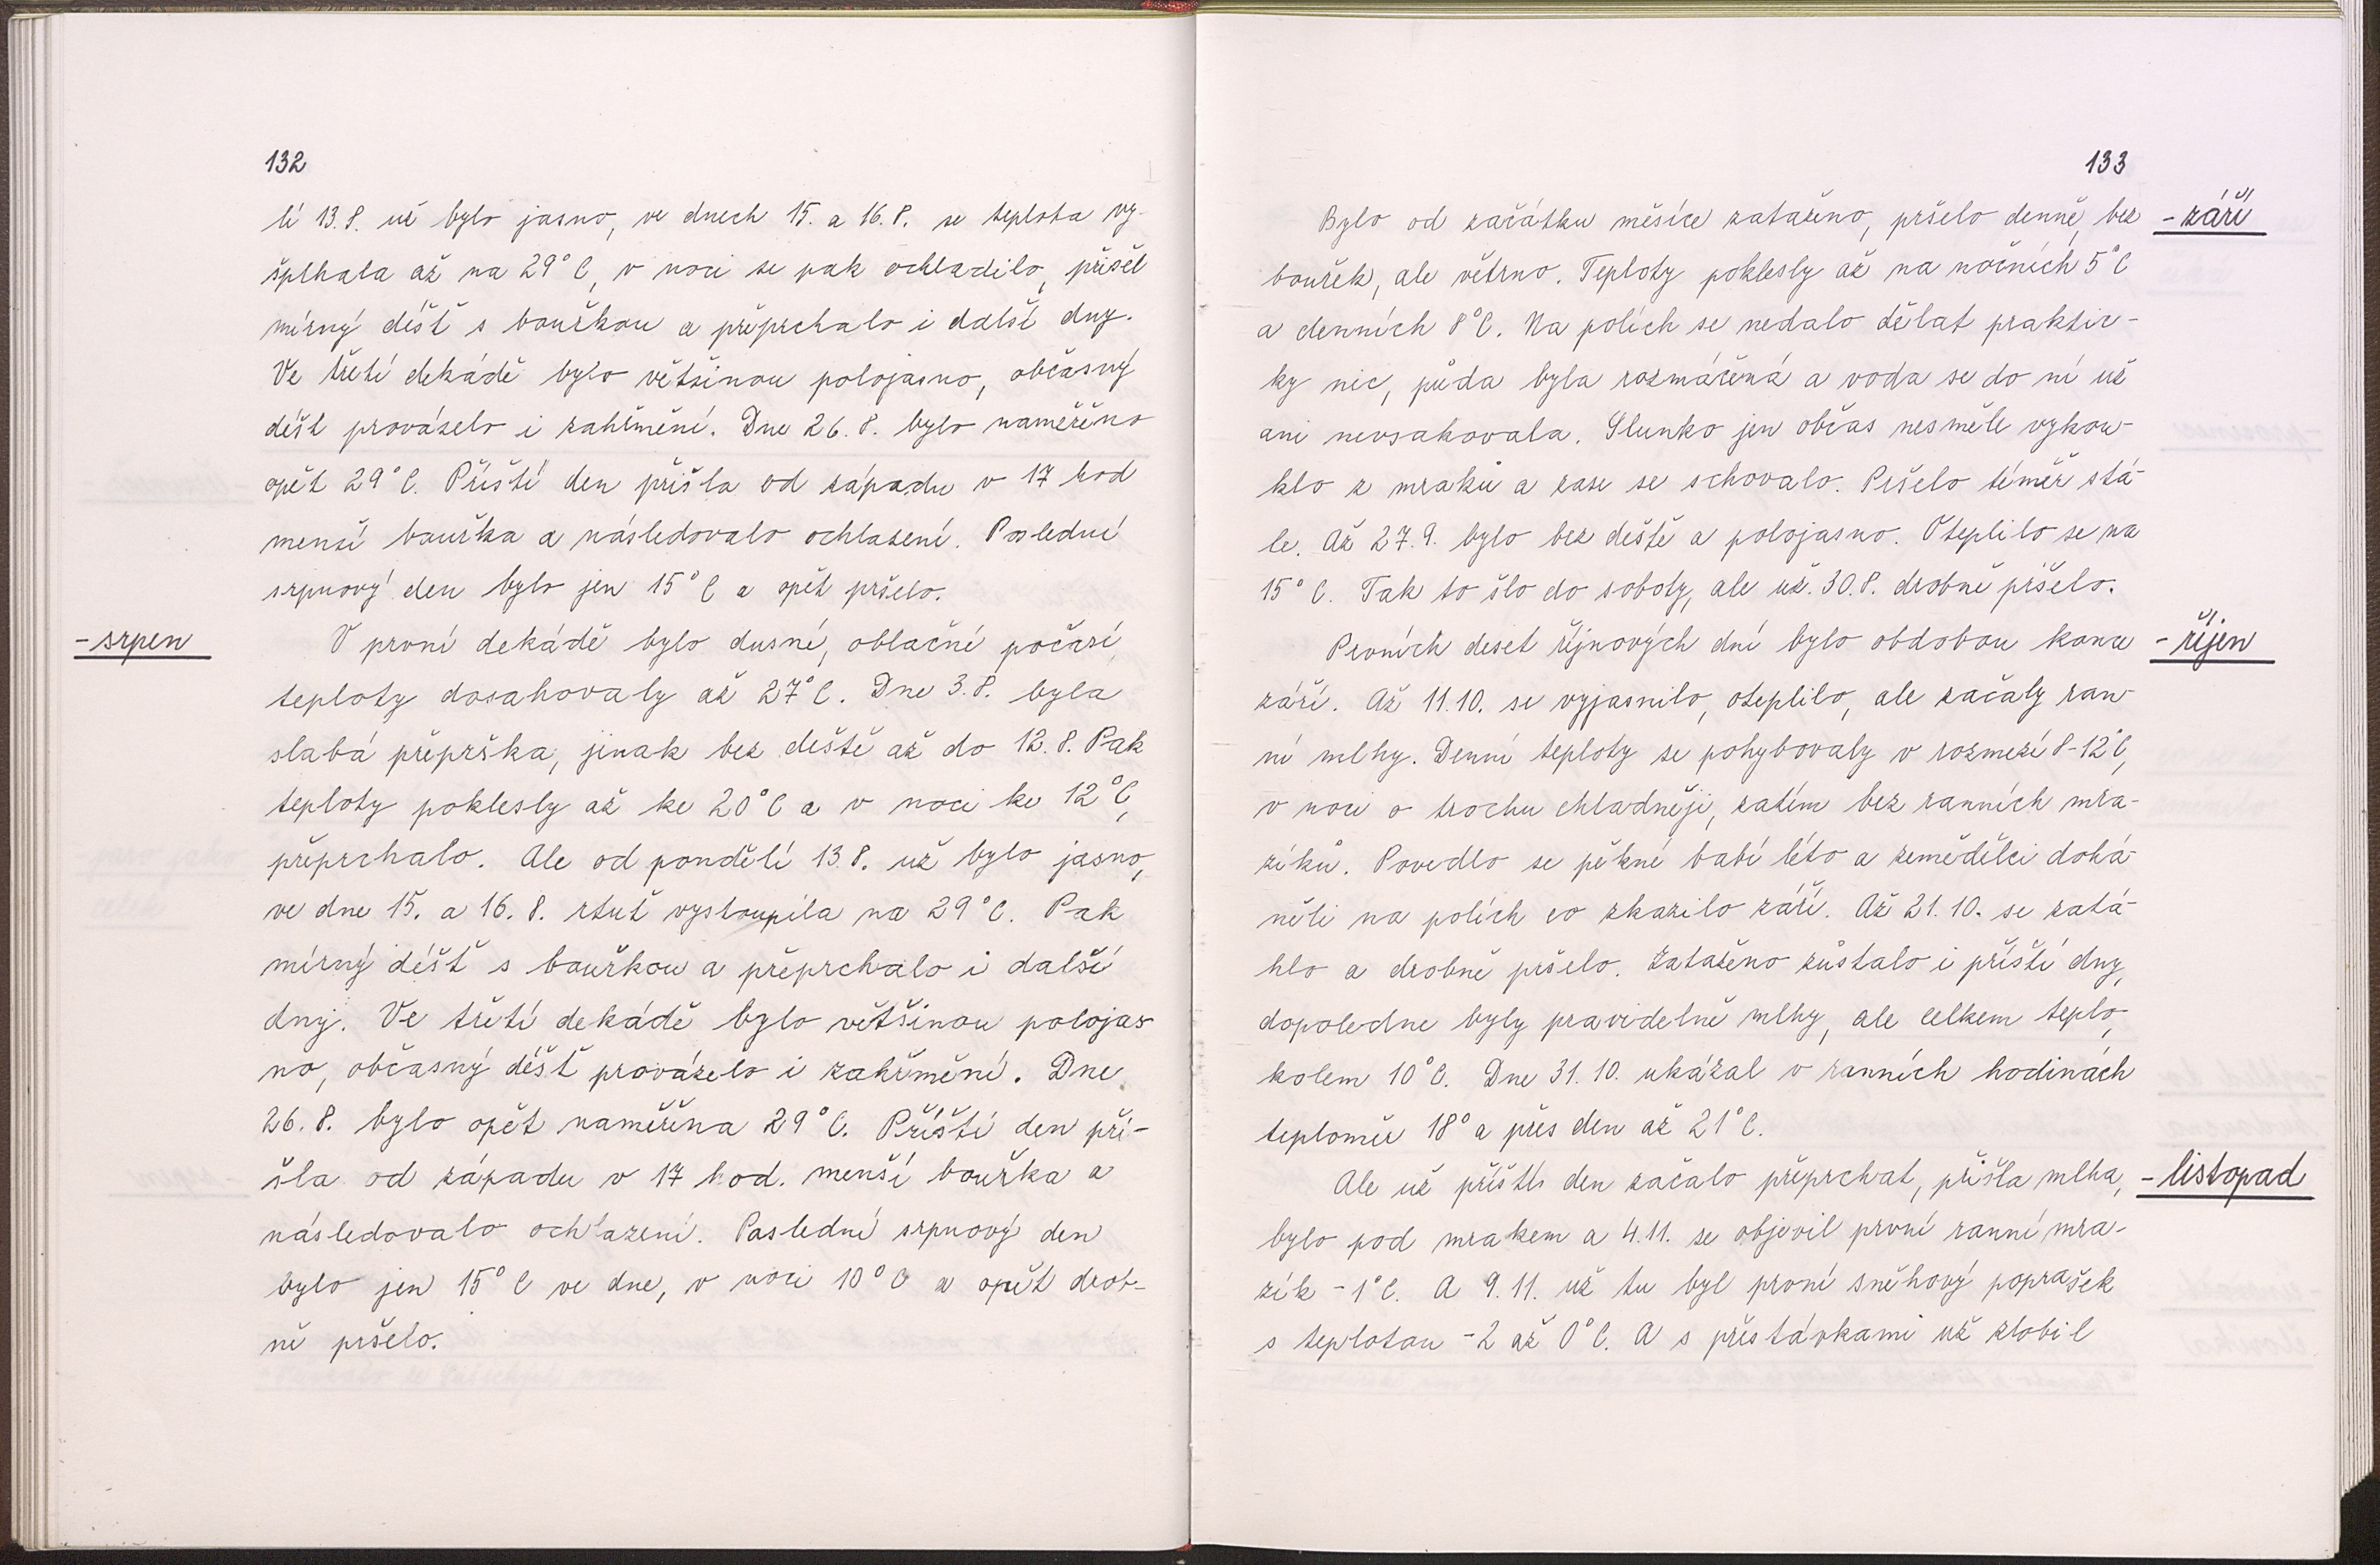 132
lí 13.8. už bylo jasno, ve dnech 15. a 16.8. se teplota vy-
šplhala až na 29°C, v noci se pak ochladilo, přišel
mírný déšť s bouřkou a přeprchalo i další dny.
Ve třetí dekádě bylo většinou polojasno, občasný
déšť provázelo i zahřmění. Dne 26.8. bylo naměřeno
opět 29°C. Příští den přišla od západu v 17 hod
menší bouřka a následovalo ochlazení. Poslední
srpnový den bylo jen 15°C a opět pršelo.
- srpen
V první dekádě bylo dusné, oblačné počasí,
teploty dosahovaly až 27°C. Dne 3.8. byla
slabá přeprška, jinak bez deště až do 12.8. Pak
teploty poklesly až ke 20°C a v noci ke 12°C,
přeprchalo. Ale od pondělí 13.8. už bylo jasno,
ve dne 15. a 16.8. rtuť vystoupila na 29°C. Pak
mírný déšť s bouřkou a přeprchalo i další
dny. Ve třetí dekádě bylo většinou polojas-
no, občasný déšť provázelo i zahřmění. Dne
26.8. bylo opět naměřena 29°C. Příští den při-
šla od západu v 17 hod. menší bouřka a
následovalo ochlazení. Poslední srpnový den
bylo jen 15°C ve dne, v noci 10°C a opět drob-
ně pršelo.
133
- září
Bylo od začátku měsíce zataženo, pršelo denně, bez
bouřek, ale větrno. Teploty poklesly až na nočních 5°C
a denních 8°C. Na polích se nedalo dělat praktic-
ky nic, půda byla rozmáčená a voda se do ní už
ani nevsakovala. Slunko jen občas nesměle vykou-
klo z mraků a zase se schovalo. Pršelo téměř stá-
le. Až 27.9. bylo bez deště a polojasno. Oteplilo se na
15°C. Tak to šlo do soboty, ale už. 30.8. drobně pršelo.
- říjen
Prvních deset říjnových dní bylo obdobou konce
září. Až 11.10. se vyjasnilo, oteplilo, ale začaly ran-
ní mlhy. Denní teploty se pohybovaly v rozmezí 8-12°C,
v noci o trochu chladněji, zatím bez ranních mra-
zíků. Povedlo se pěkné babí léto a zemědělci dohá-
něli na polích co zkazilo září. Až 21.10. se zatá-
hlo a drobně pršelo. Zataženo zůstalo i příští dny,
dopoledne byly pravidelně mlhy, ale celkem teplo,
kolem 10°C. Dne 31.10. ukázal v ranních hodinách
teploměr 18° a přes den až 21°C.
- listopad
Ale už příští den začalo přeprchat, přišla mlha,
bylo pod mrakem a 4.11. se objevil první ranní mra-
zík -1°C. A 9.11. už tu byl první sněhový poprašek
s teplotou -2 až 0°C. A s přestávkami už zlobil